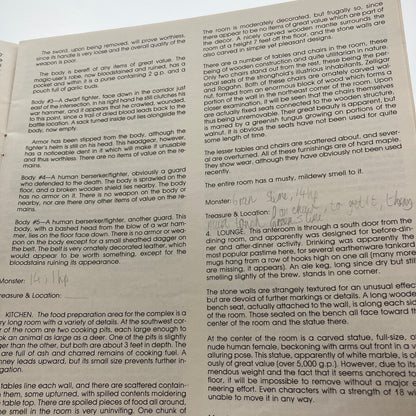 The sword, upon being removed, will prove worthless,
since its handle is very loose and the overall quality of the
weapon is poor.
The body is bereft of any items of great value. The
magic-user's robe, now bloodstained and ruined, has a
pocket and within it is a purse containing 2 g.p. and a
pouch full of garlic buds.
Body #3—A dwarf fighter, face down in the corridor just
east of the intersection. In his right hand he still clutches his
war hammer, and it appears that he crawled, wounded,
to this point, since a trail of dried blood leads back to the
battle location. A sack turned inside out lies alongside the
body, now empty.
Armor has been slipped from the body, although the
fighter's helm is still on his head. This headgear, however,
has a noticeable dent in it which will make it unusable
and thus worthless. There are no items of value on the re-
mains.
Body #4—A human berserker/fighter, obviously a guard
who defended to the death. The body is sprawled on the
floor, and a broken wooden shield lies nearby. The body
has no armor on it. There is no weapon on the body or
nearby, nor are there any other items of value on the re-
mains.
Body #5—A human berserker/fighter, another guard. This
body, with a bashed head from the blow of a war ham-
mer, lies on the floor face down. There is no armor or wea-
pon on the body except for a small sheathed dagger on
the belt. The belt is very ornately decorated leather, which
would appear to be worth something, except for the
bloodstains ruining its appearance.
Monster:
reasure & Location:
KITCHEN. The food preparation area for the complex is a
ry long room with a variety of details. At the southwest cor-
r of the room are two cooking pits, each large enough to
ok an animal as large as a deer. One of the pits is slightly
ger than the other, but both are about 3 feet in depth. The
are full of ash and charred remains of cooking fuel. A
nney leads upward, but its small size prevents further in-
gation.
tables line each wall, and there are scattered contain-
them, some upturned, with spilled contents moldering
table top. There are spoiled pieces of food all around,
e smell in the room is very uninviting. One chunk of
The room is moderately decorated, but frugally so, since
there appear to be no items of great value which are part of
the decor. A nicely carved wooden mantle surrounds the
room at a height of 7 feet off the floor, and the stone walls are
also carved in simple yet pleasant designs.
There are a number of tables and chairs in the room, these
being of wooden construction and quite utilitarian in nature.
Only two chairs stand out from the rest, these being the per-
sonal seats of the stronghold's illustrious inhabitants, Zelligar
and Rogahn. Both of these chairs are ornately carved walnut,
formed from an enormous block of wood which forms a
portion of the seat in the northeast corner of the room. Upon
closer examination, it will be seen that the chairs themselves
are actually fixed seats connected to the wood structure,
thus being unremovable. Their great beauty is apparent, but
is marred by a greenish fungus growing on portions of the
walnut. It is obvious the seats have not been used for quite
some length of time.
The lesser tables and chairs are scattered about, and sever-
al are overturned. All of these furnishings are of hard maple.
They show wear, although they have obviously not been used
recently.
The entire room has a musty, mildewy smell to it.
Monster:
Treasure & Location:
4. LOUNGE. This anteroom is through a south door from the
dining room, and apparently was designed for before-din-
ner and after-dinner activity. Drinking was apparently the
most popular pastime here, for several earthenware tankard
mugs hang from a row of hooks high on one all (many more
are missing, it appears). An ale keg, long since dry but still
smelling slightly of the brew, stands in one corner.
The stone walls are strangely textured for an unusual effect
but are devoid of further markings or details. A long wood
bench seat, actually attached to the wall, is along each sid
of the room. Those seated on the bench all face toward th
center of the room and the statue there.
At the center of the room is a carved statue, full-size, o
nude human female, beckoning with arms out front in a v
alluring pose. This statue, apparently of white marble, is ob
ously of great value (over 5,000 g.p.). However, due to its
mendous weight and the fact that it seems anchored to
floor, it will be impossible to remove without a major e
neering effort. Even characters with a strength of 18 w
unable to move it in any way.